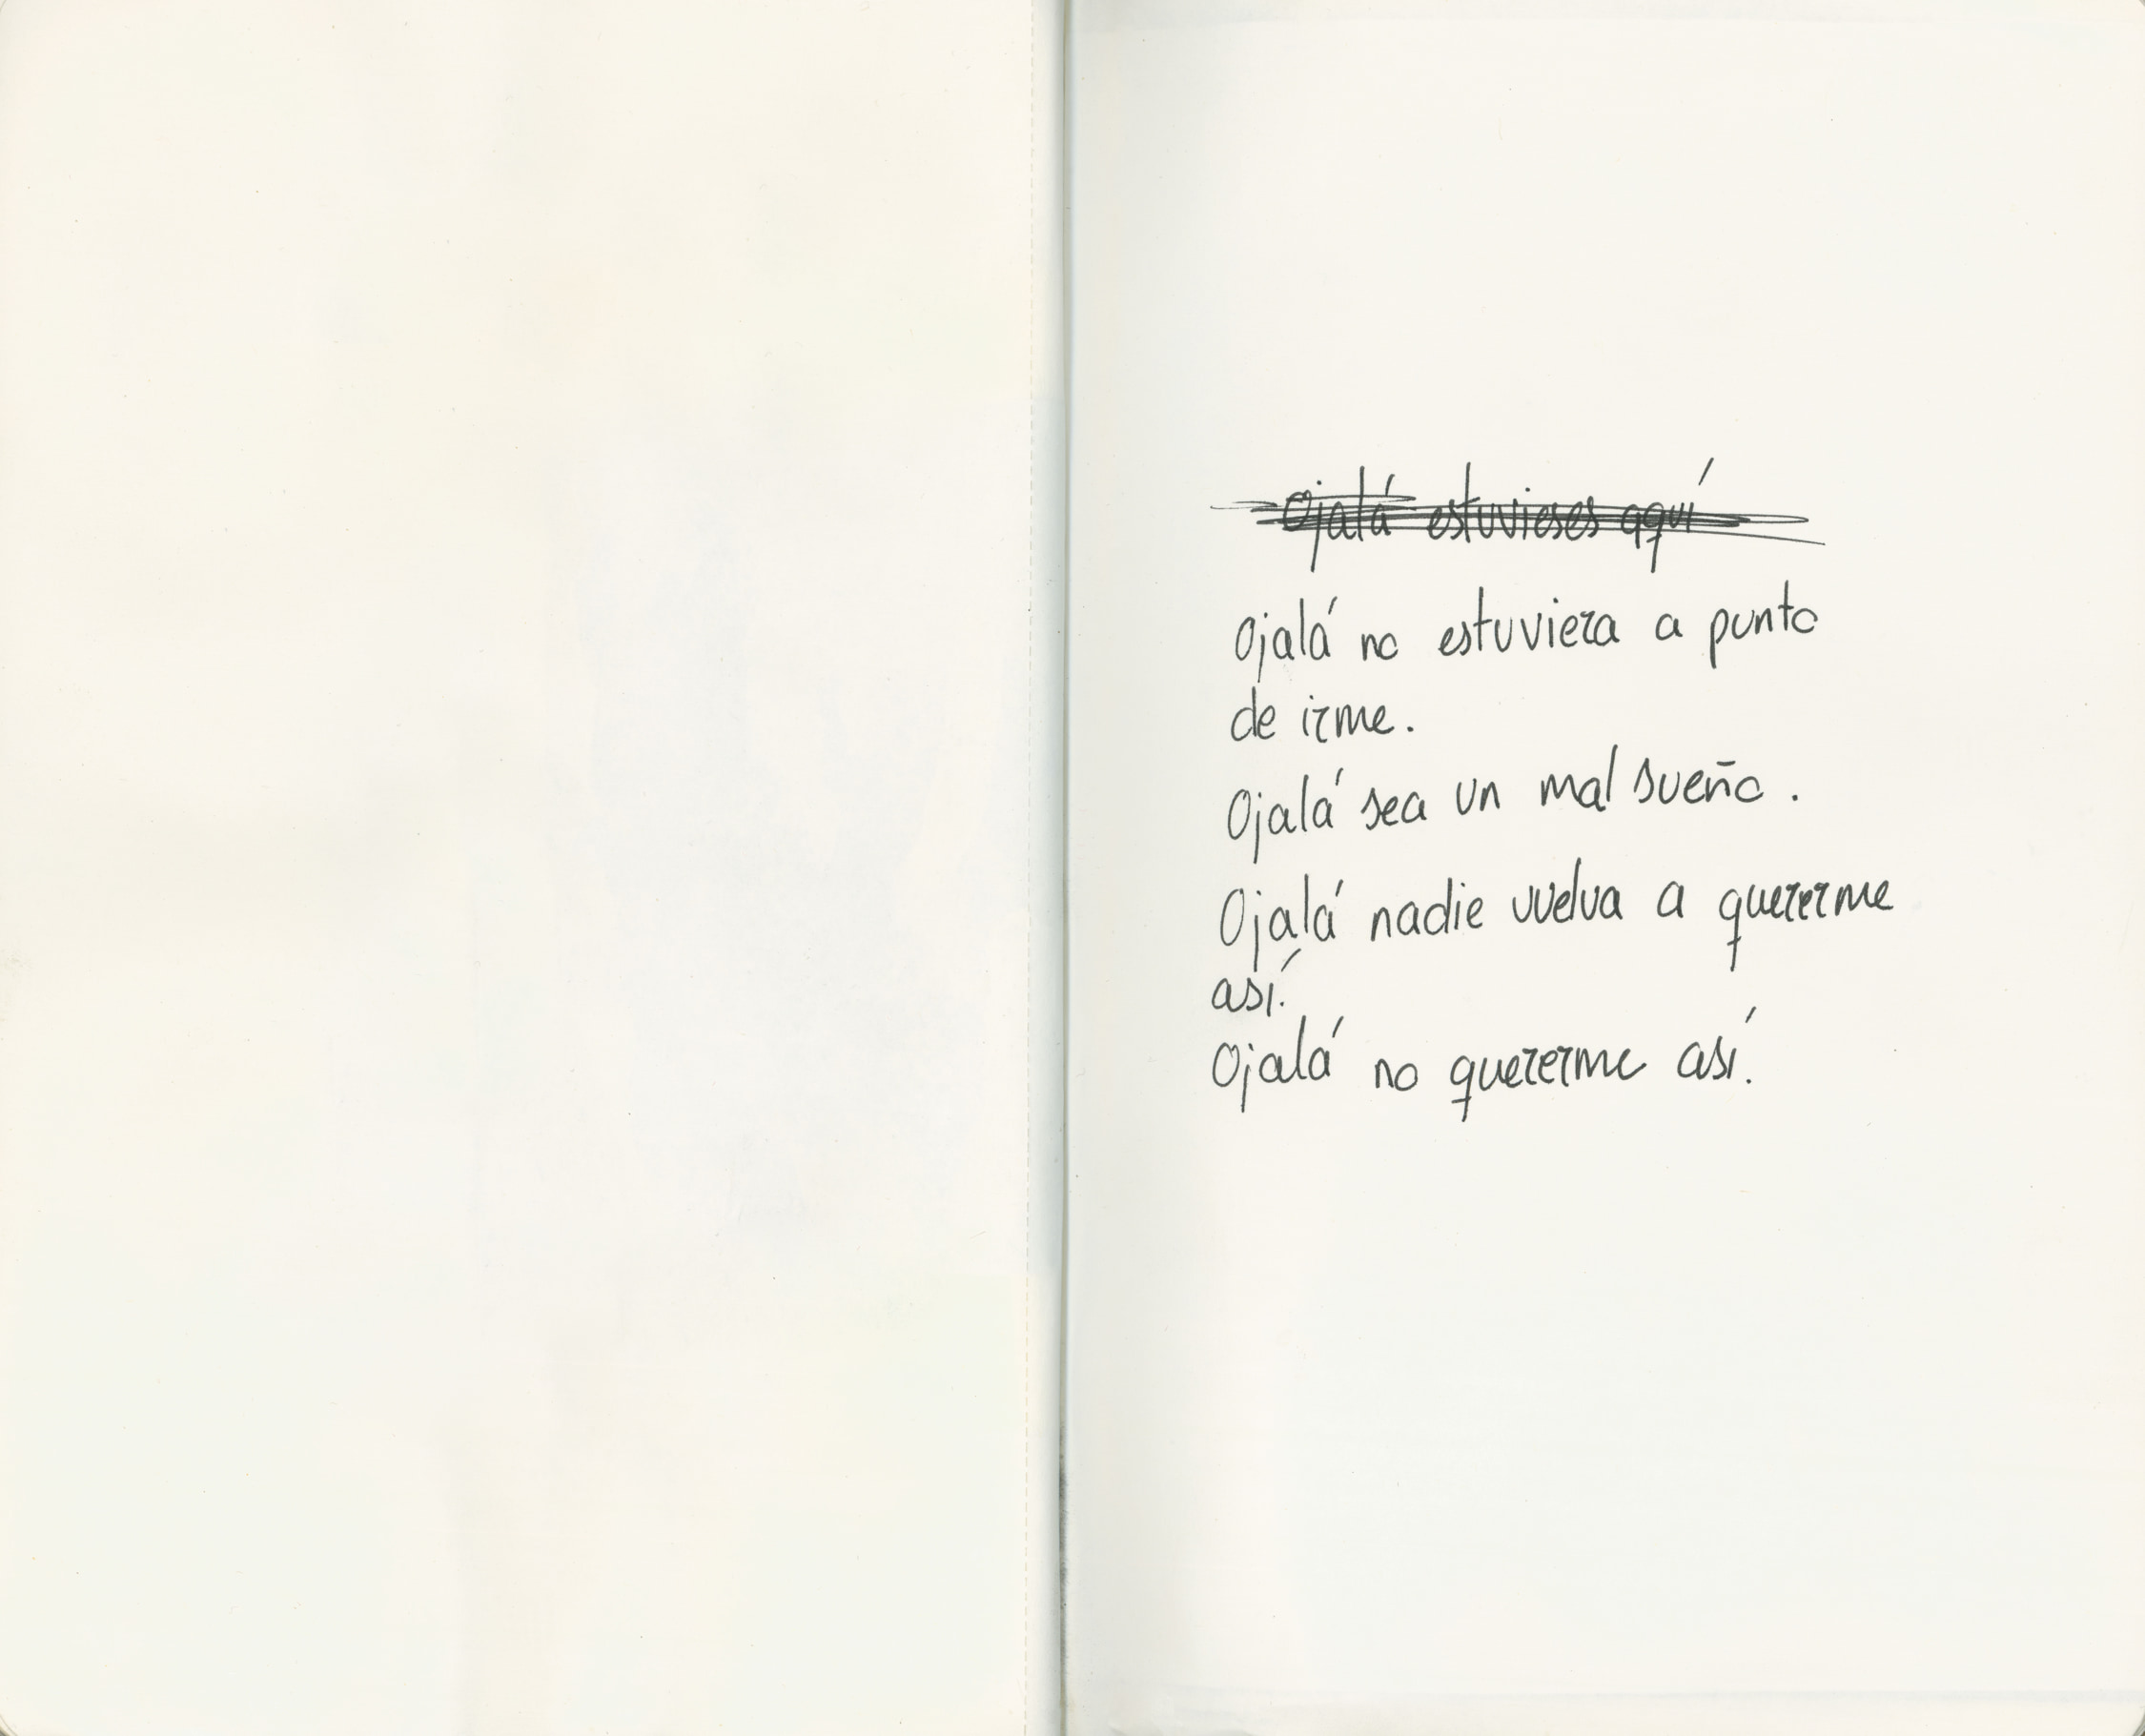 Ojalá estuvieses aquí
Ojalá no estuviera a punto
de irme.
Ojalá sea un mal sueño.
Ojalá nadie vuelva a quererme
así.
Ojalá no quererme así.